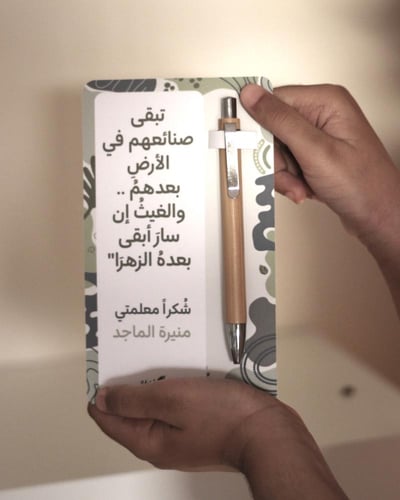 تبقى
صنائعهم في
الأرضِ
بعدهمُ ..
والغيثُ إن
سارَ أبقى
بعدهُ الزهرَا"
شُكراً معلمتي
منيرة الماجد